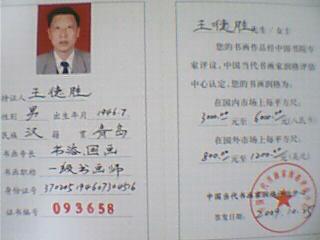 持证人 王德胜
性别 男 出生年月 1946.7
民族 汉 籍贯 青岛
书画专长 书法国画
书画职称 一级书画师
身份证号
证书编号 093658
王德胜 先生/女士
您的书画作品经中国书院专
家评议,中国当代书画家润格评估
中心认定,您的书画润格为:
在国内市场上每平方尺:
3000.00 元至 6000.00 元(人民币)
在国外市场上每平方尺:
800.00 元至 1200.00 元(美元)
中国当代书画家润格评估中心
签发日期: 2009.10.